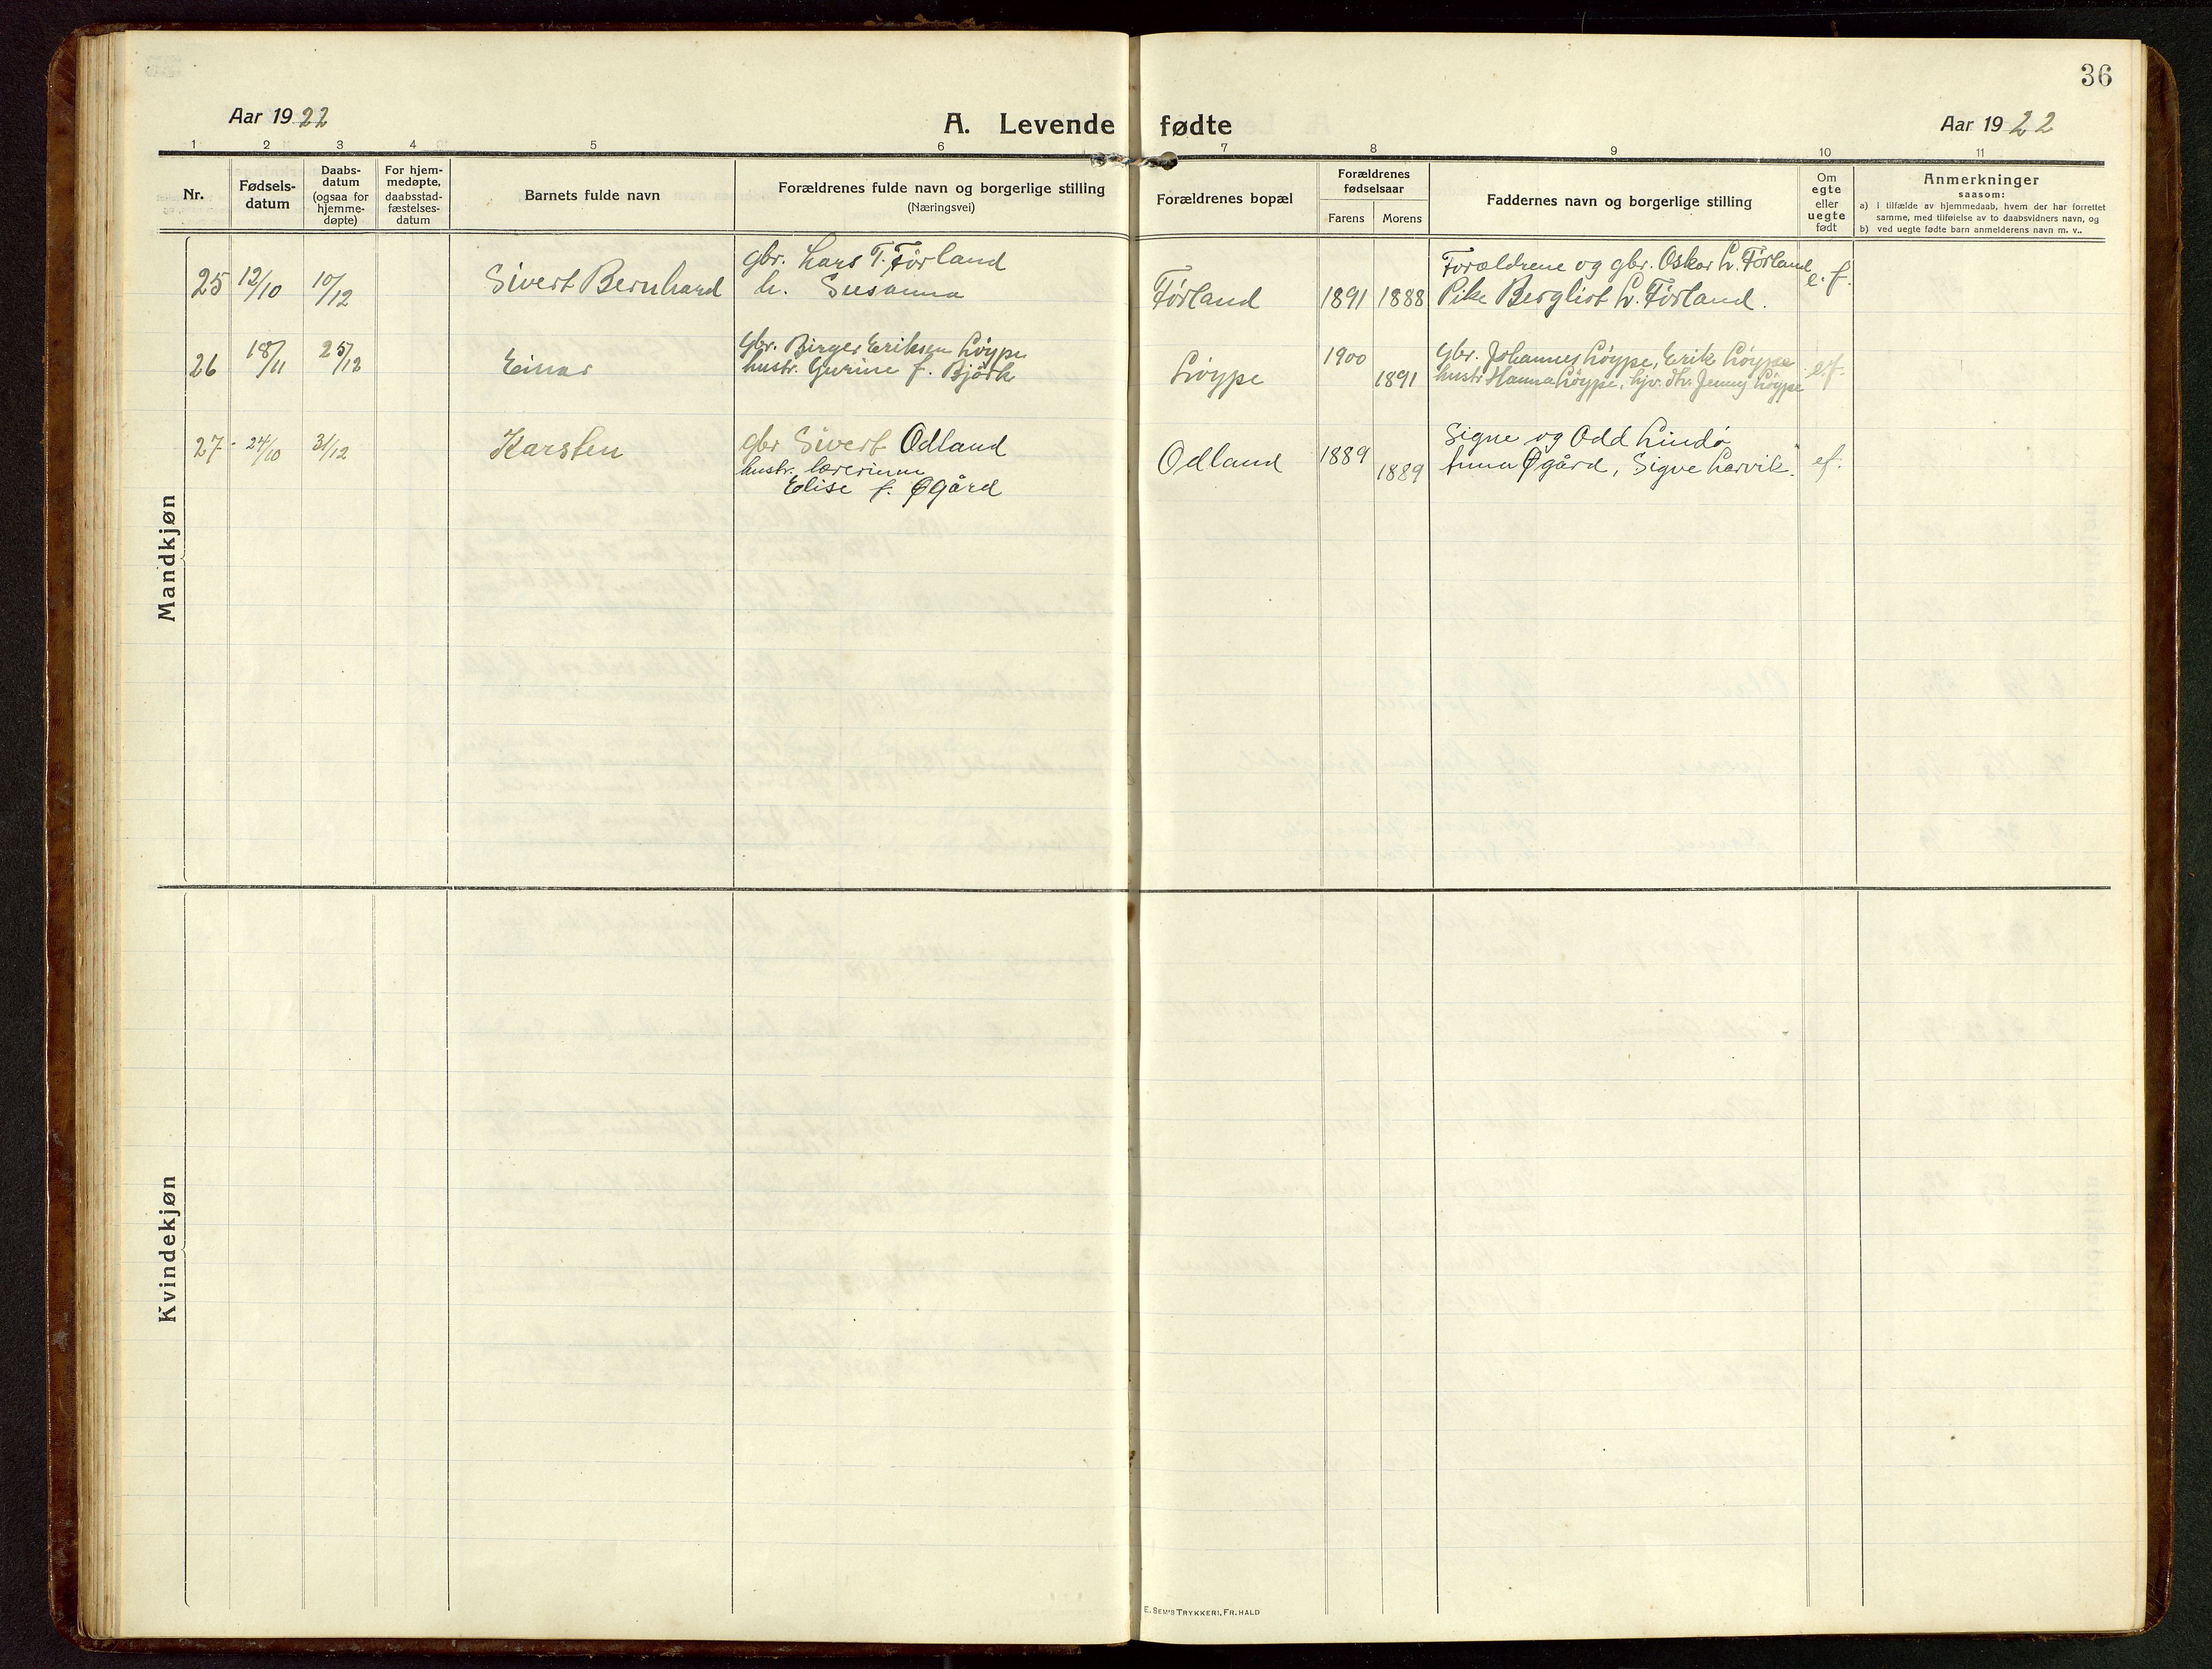 36
Aar 1922
A. Levende fødte
Aar 1922
1 2 3 4 5 6 7 8 9 10 11
Nr.
Fødsels-
datum
Daabs-
datum
(ogsaa for
hjemme-
døpte)
For hjem-
medøpte,
daabsstad-
fæstelses-
datum
Barnets fulde navn
Forældrenes fulde navn og borgerlige stilling
(Næringsvei)
Forældrenes bopæl
Forældrenes
fødselsaar
Farens Morens
Faddernes navn og borgerlige stilling
Om
egte
eller
uegte
født
Anmerkninger
saasom:
a) i tilfælde av hjemmedaab, hvem der har forrettet
samme, med tilføielse av to daabsvidners navn, og
b) ved uegte fødte barn anmelderens navn m. v..
Mandkjøn
25 12/10 10/12 Sivert Bernhard
gbr. Lars T. Førland
h. Susanna
Førland 1891 1888
Forældrene og gbr. Oskar L. Førland
Pike Bergliot L. Førland.
e. f.
26 18/11 25/12 Einar
Gbr. Birger Eriksen Løype
hustr. Gurine f. Bjørk
Løype 1900 1891
Gbr. Johannes Løype, Erik Løype
hustr Hanna Løype, hjv. dtr. Jenny Løype
ef.
27 24/10 31/12 Karsten
gbr Sivert Odland
hustr. lærerinne
Elise f. Øgård
Odland 1889 1889
Signe og Odd Lindø
Anna Øgård, Signe Larvik.
ef.
Kvindekjøn
E. SEM'S TRYKKERI, FR. HALD